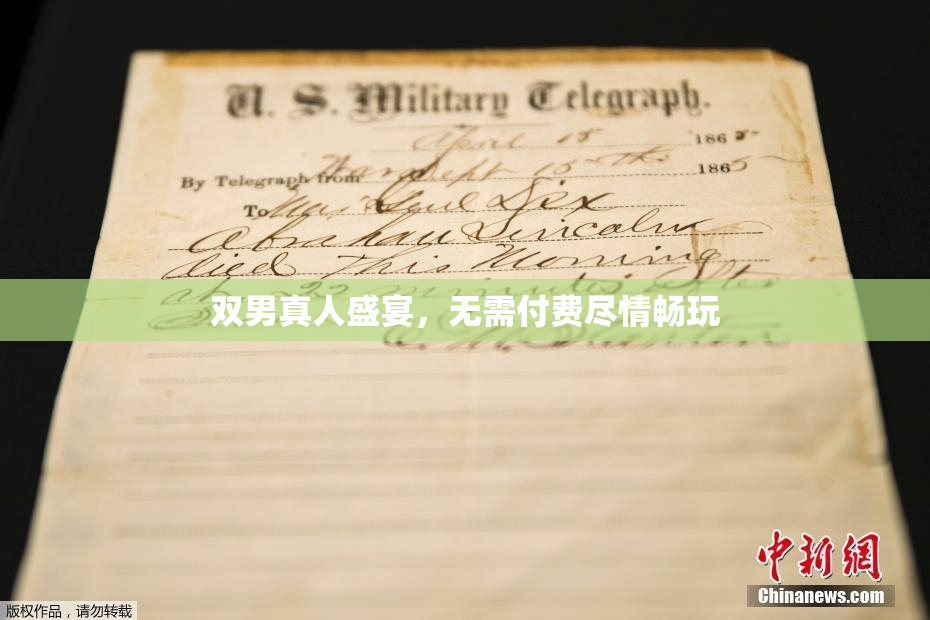 U. S. Military Telegraph.
April 15 1865
By Telegraph from War Dept 15th 1865
To Maj Genl Dix
Abraham Lincoln
died This Morning
at 22 minutes after
双男真人盛宴，无需付费尽情畅玩
中新网
Chinanews.com
版权作品，请勿转载